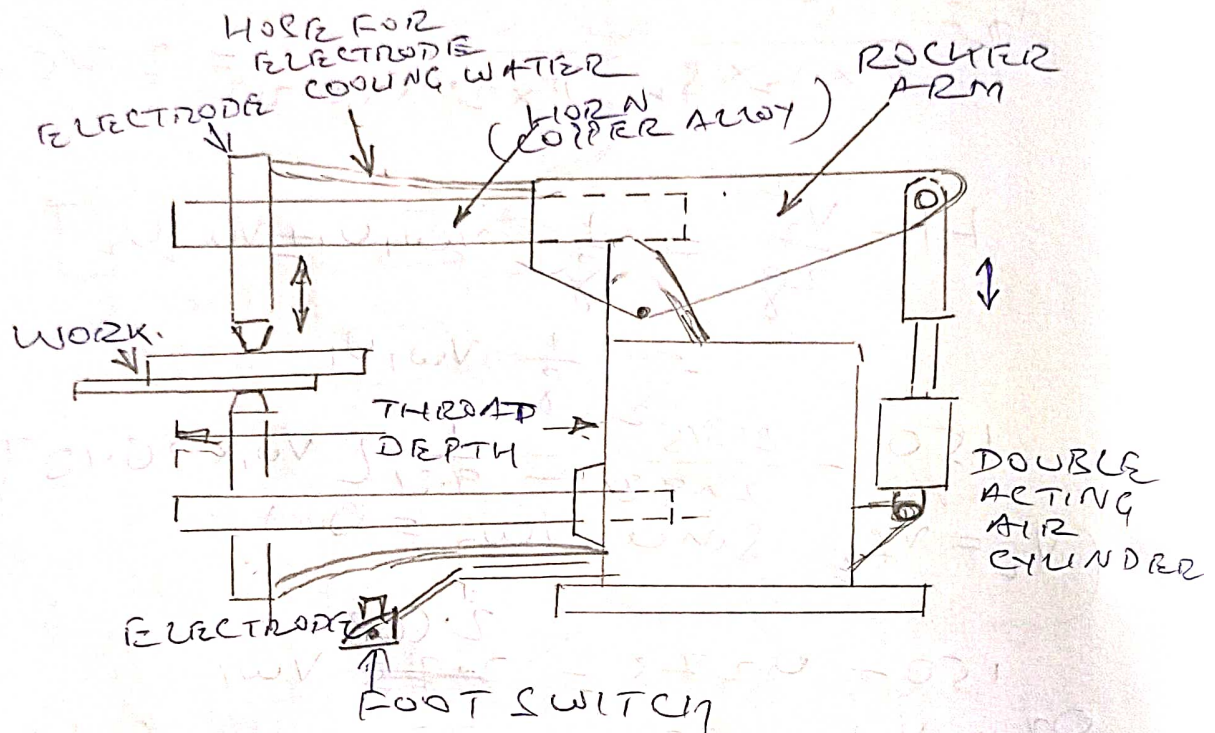 HOSE FOR
ELECTRODE
COOLING WATER
ELECTRODE
HORN
(COPPER ALLOY)
ROCKER
ARM
WORK.
THROAD
DEPTH
DOUBLE
ACTING
AIR
CYLINDER
ELECTRODE
FOOT SWITCH